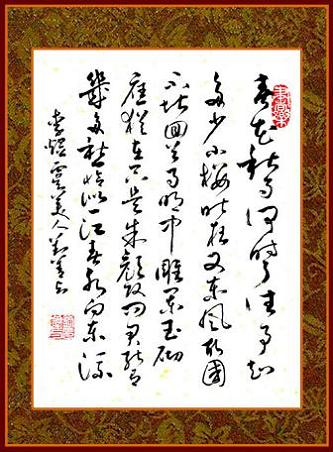 春花秋月何時了往事知
多少小樓昨夜又東風故國
不堪回首月明中雕闌玉砌
應猶在只是朱顏改問君能有
幾多愁恰似一江春水向東流
李煜虞美人